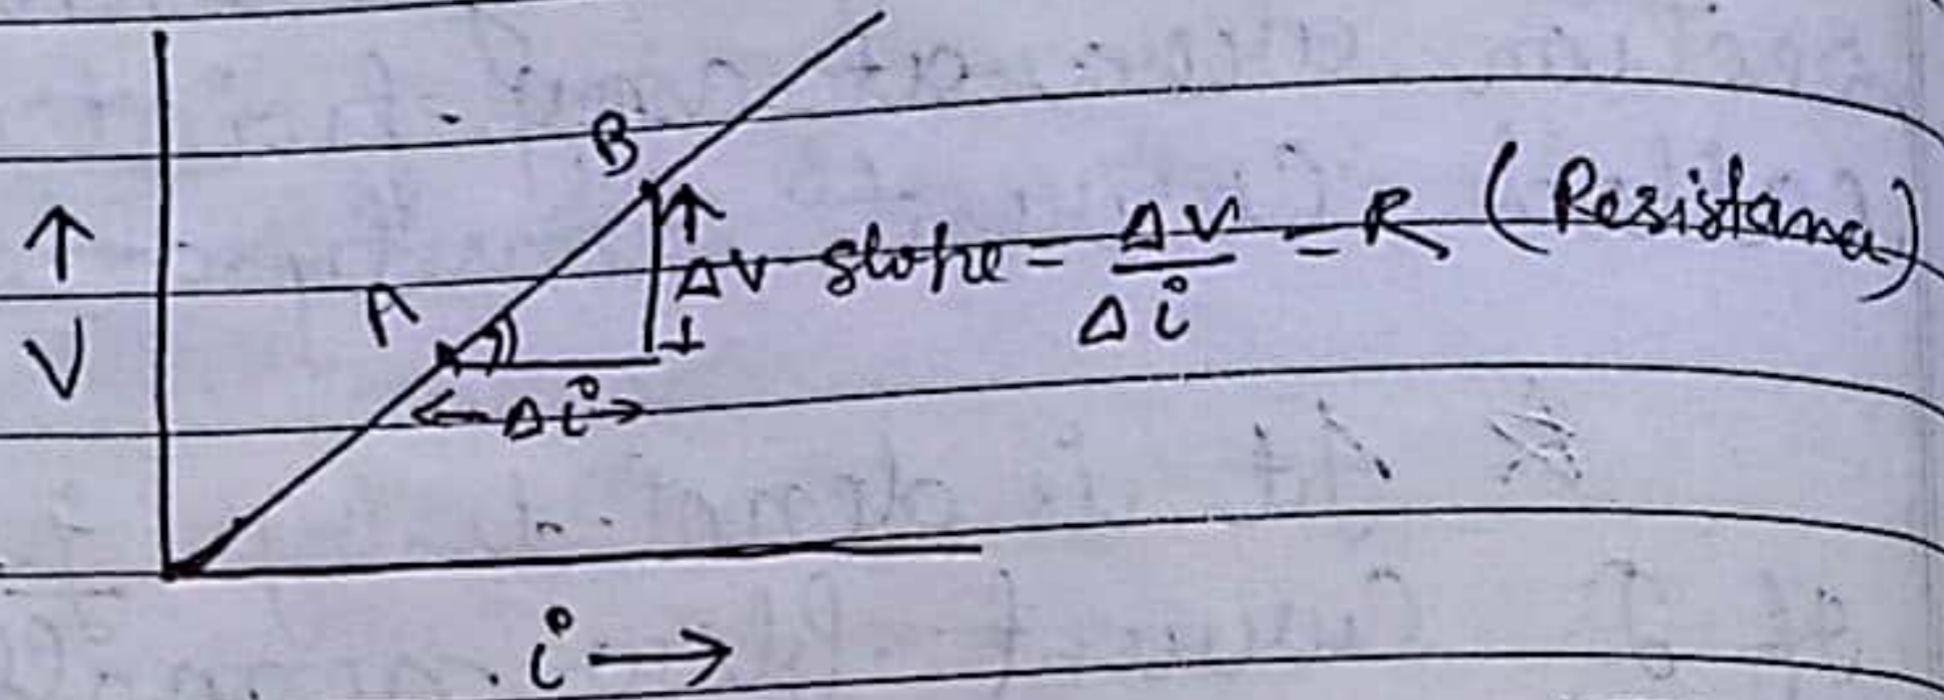 B
ΔV slope = ΔV/Δi = R (Resistance)
A
↑
V
←Δi→
i →